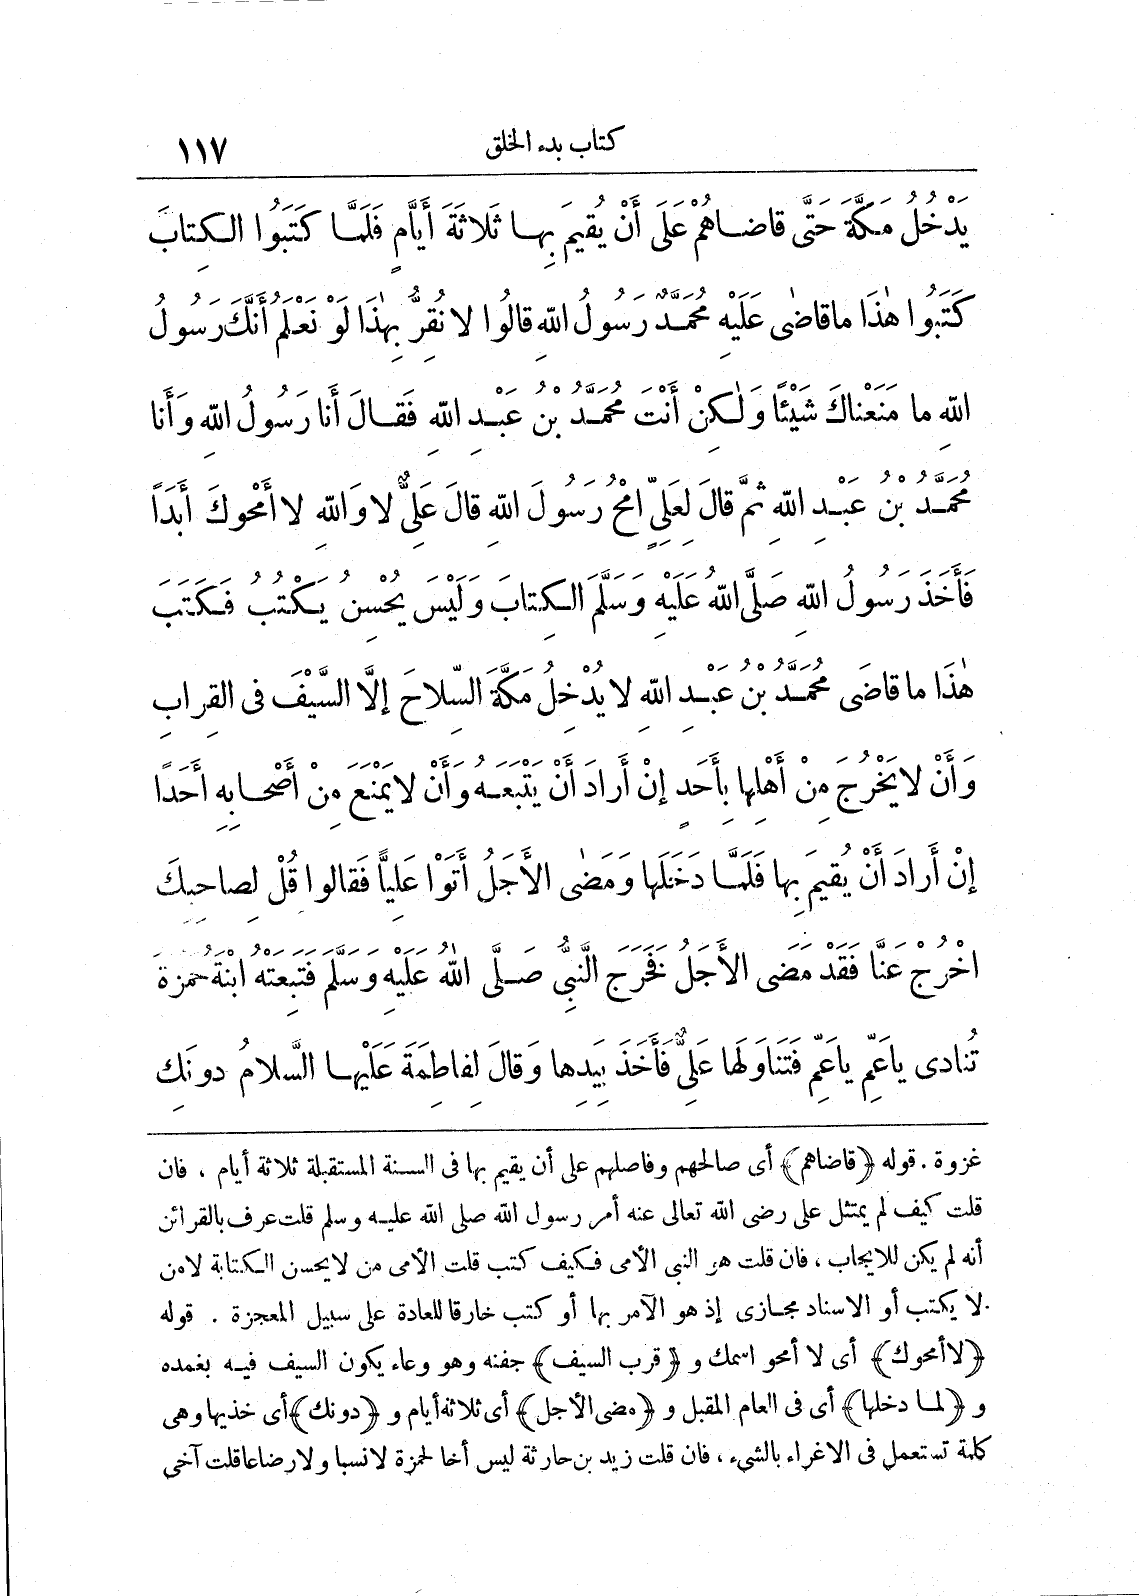 كتاب بدء الخلق ١١٧
يَدْخُلُ مَكَّةَ حَتَّى قاضاهُمْ عَلَى أَنْ يُقِيمَ بِها ثَلاثَةَ أَيَّامٍ فَلَمَّا كَتَبُوا الكِتابَ
كَتَبُوا هٰذَا ماقاضٰى عَلَيْهِ مُحَمَّدٌ رَسُولُ اللهِ قالُوا لا نُقِرُّ بِهٰذَا لَوْ نَعْلَمُ أَنَّكَ رَسُولُ
اللهِ ما مَنَعْناكَ شَيْئًا وَلٰكِنْ أَنْتَ مُحَمَّدُ بْنُ عَبْدِ اللهِ فَقالَ أَنا رَسُولُ اللهِ وَأَنا
مُحَمَّدُ بْنُ عَبْدِ اللهِ ثُمَّ قالَ لِعَلِيٍّ امْحُ رَسُولَ اللهِ قالَ عَلِيٌّ لا وَاللهِ لا أَمْحُوكَ أَبَدًا
فَأَخَذَ رَسُولُ اللهِ صَلَّى اللهُ عَلَيْهِ وَسَلَّمَ الكِتابَ وَلَيْسَ يُحْسِنُ يَكْتُبُ فَكَتَبَ
هٰذَا ما قاضَى مُحَمَّدُ بْنُ عَبْدِ اللهِ لا يُدْخِلُ مَكَّةَ السِّلاحَ إِلَّا السَّيْفَ فى القِرابِ
وَأَنْ لا يَخْرُجَ مِنْ أَهْلِها بِأَحَدٍ إِنْ أَرادَ أَنْ يَتْبَعَهُ وَأَنْ لا يَمْنَعَ مِنْ أَصْحابِهِ أَحَدًا
إِنْ أَرادَ أَنْ يُقِيمَ بِها فَلَمَّا دَخَلَها وَمَضٰى الأَجَلُ أَتَوْا عَلِيًّا فَقالوا قُلْ لِصاحِبِكَ
اخْرُجْ عَنَّا فَقَدْ مَضى الأَجَلُ فَخَرَجَ النَّبِيُّ صَلَّى اللهُ عَلَيْهِ وَسَلَّمَ فَتَبِعَتْهُ ابْنَةُ حَمْزَةَ
تُنادى ياعَمِّ ياعَمِّ فَتَناوَلَها عَلِيٌّ فَأَخَذَ بِيَدِها وَقالَ لِفاطِمَةَ عَلَيْها السَّلامُ دونَكِ
غزوة . قوله ﴿قاضاهم﴾ أى صالحهم وفاصلهم على أن يقيم بها فى السنة المستقبلة ثلاثة أيام ، فان
قلت كيف لم يمتثل على رضى الله تعالى عنه أمر رسول الله صلى الله عليه وسلم قلت عرف بالقرائن
أنه لم يكن للايجاب ، فان قلت هو النبى الأمى فكيف كتب قلت الأمى من لا يحسن الكتابة لا من
لا يكتب أو الاسناد مجازى إذ هو الآمر بها أو كتب خارقا للعادة على سبيل المعجزة . قوله
﴿لا أمحوك﴾ أى لا أمحو اسمك و ﴿قرب السيف﴾ جفنه وهو وعاء يكون السيف فيه بغمده
و ﴿لما دخلها﴾ أى فى العام المقبل و ﴿مضى الأجل﴾ أى ثلاثة أيام و ﴿دونك﴾ أى خذيها وهى
كلمة تستعمل فى الاغراء بالشىء ، فان قلت زيد بن حارثة ليس أخا لحمزة لا نسبا ولا رضاعا قلت آخى